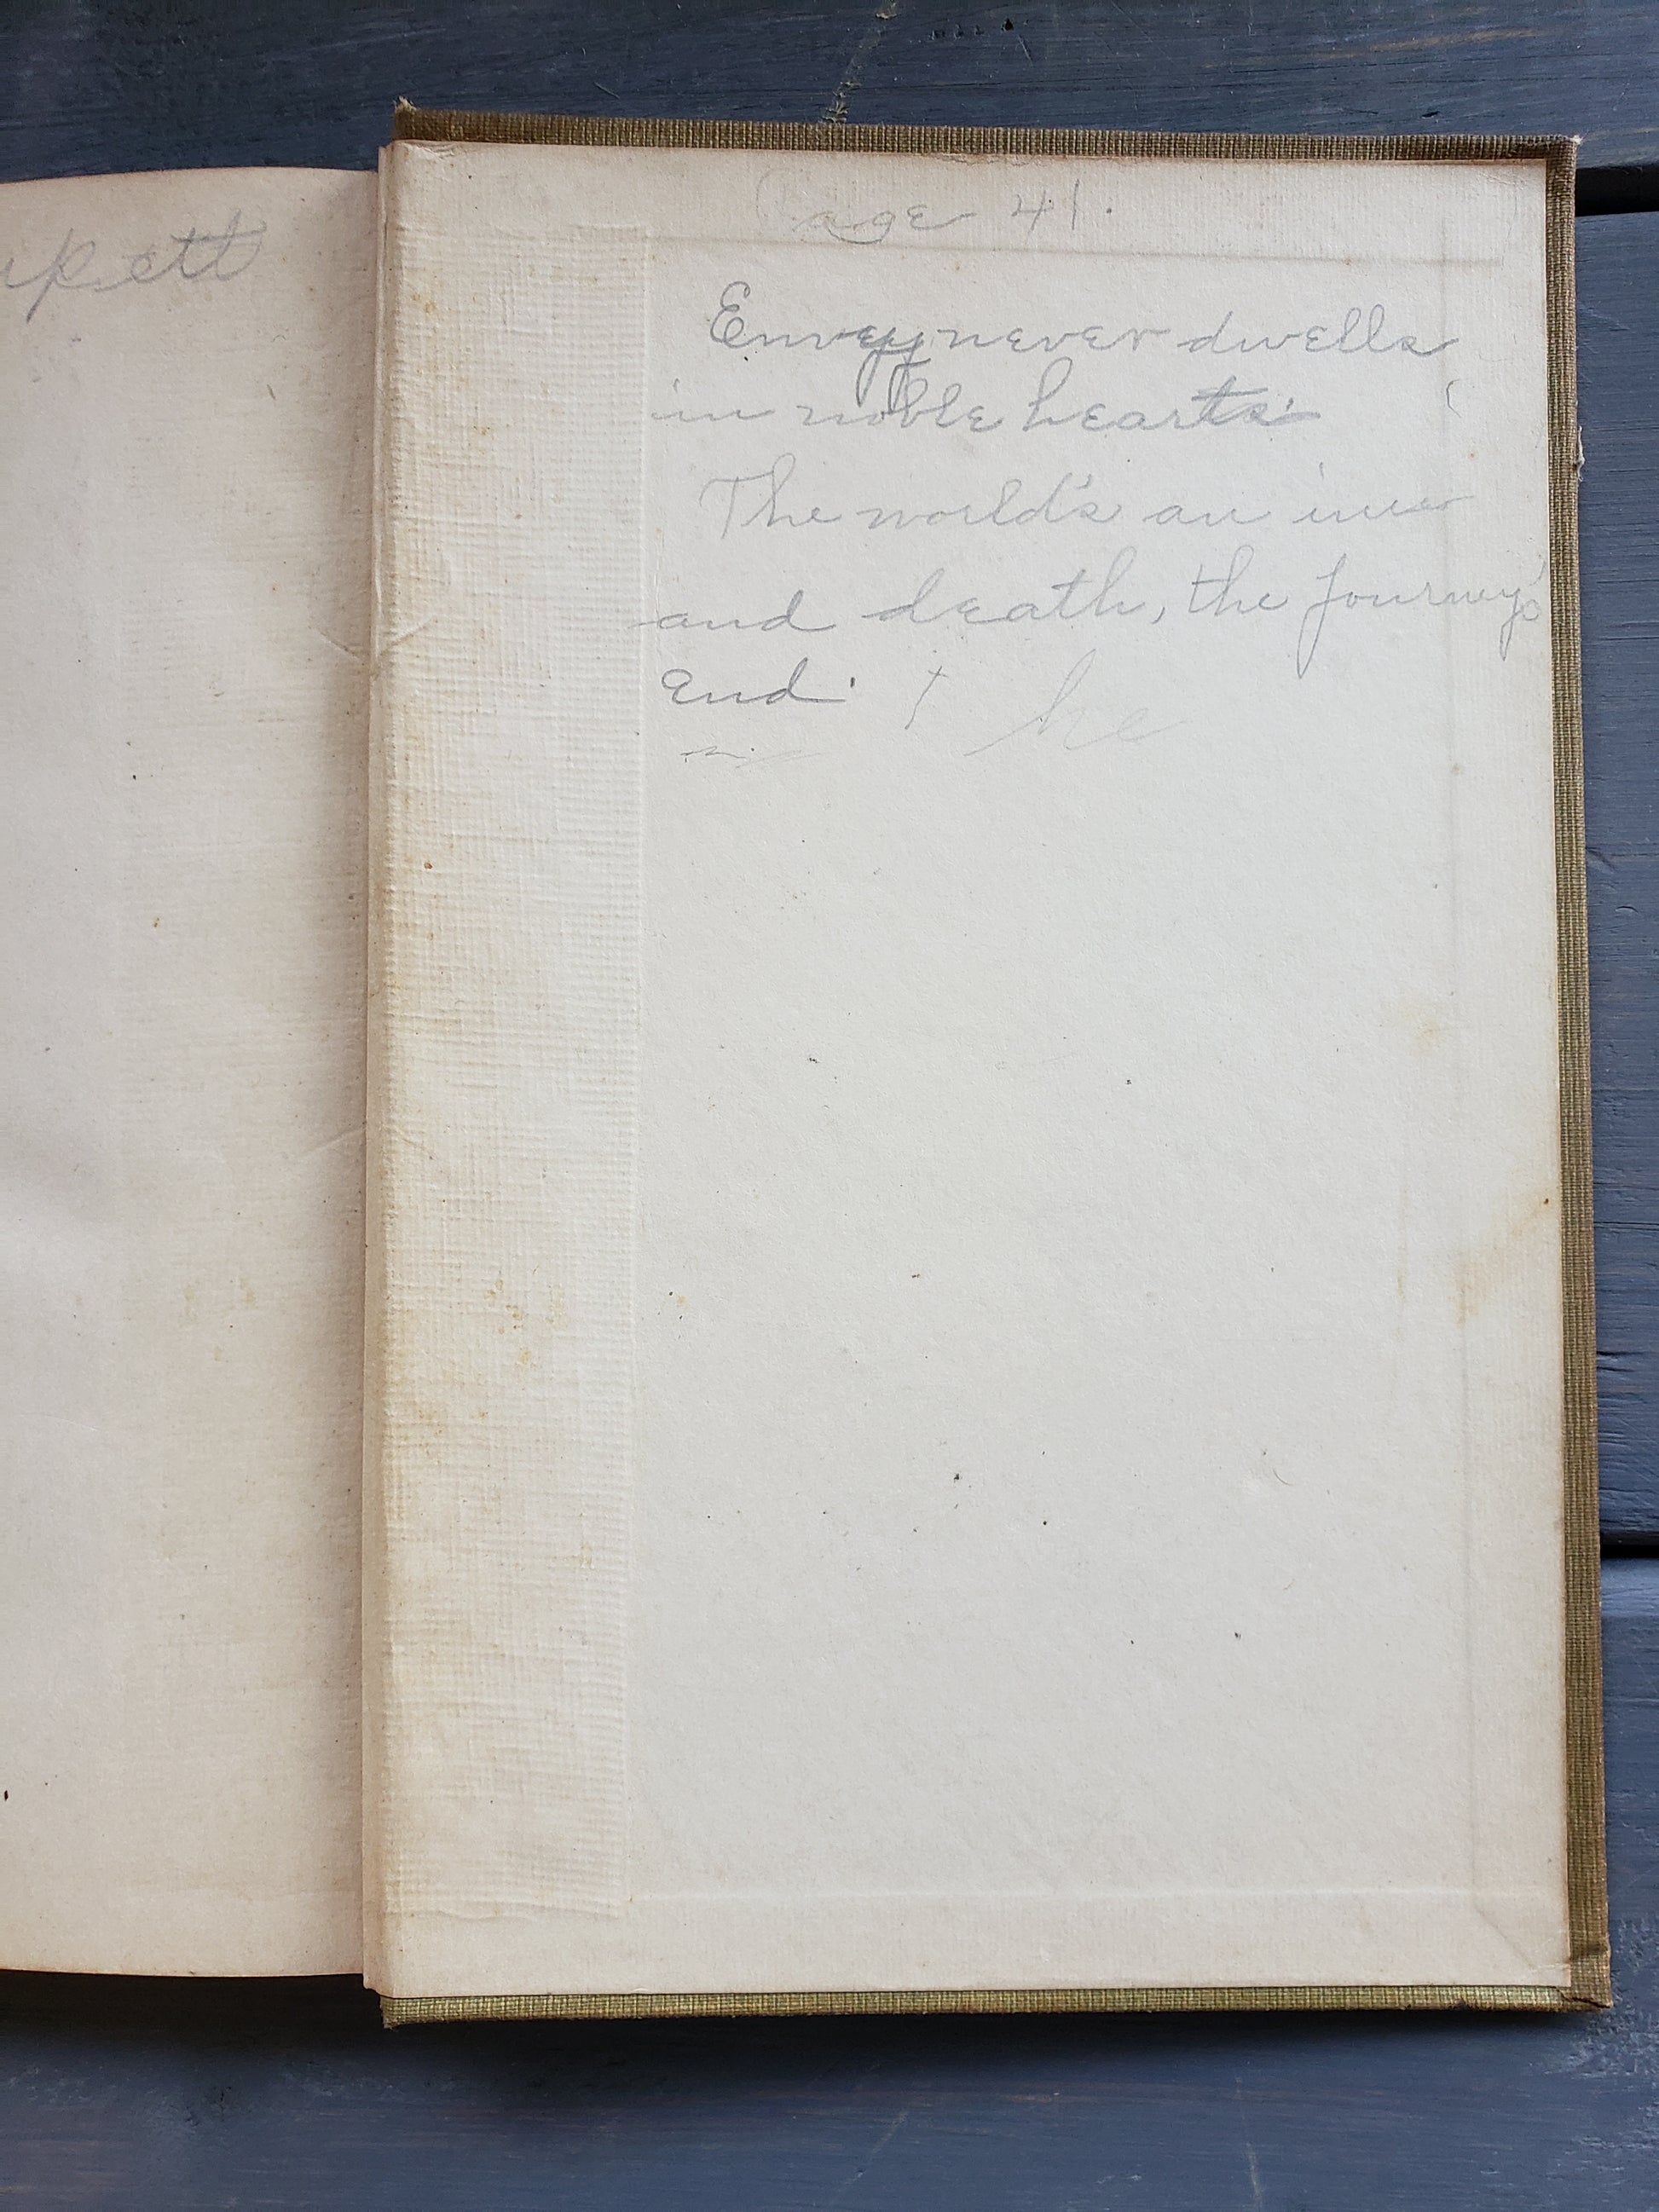 age 41.
Envey never dwells
in noble hearts.
The world's an inn
and death, the journey's
End.
he